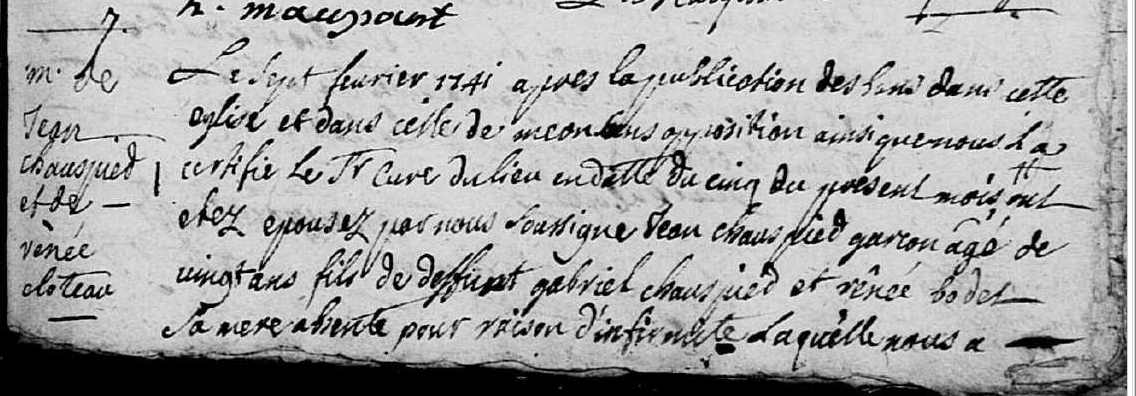 7. n. maupoint
m. de
Jean
chauspied
et de
rênée
cloteau
Le sept fevrier 1741 apres la publication des bans dans cette
eglise et dans celle de meon sans opposition ainsi que nous l'a
certifie le Sr curé du lieu en datte du cinq du present mois, ont
etez epousez par nous soussigne Jean chauspied garcon âgé de
vingt ans fils de deffunt gabriel chauspied et rênée bodet
sa mere absente pour raison d'infirmite Laquelle nous a